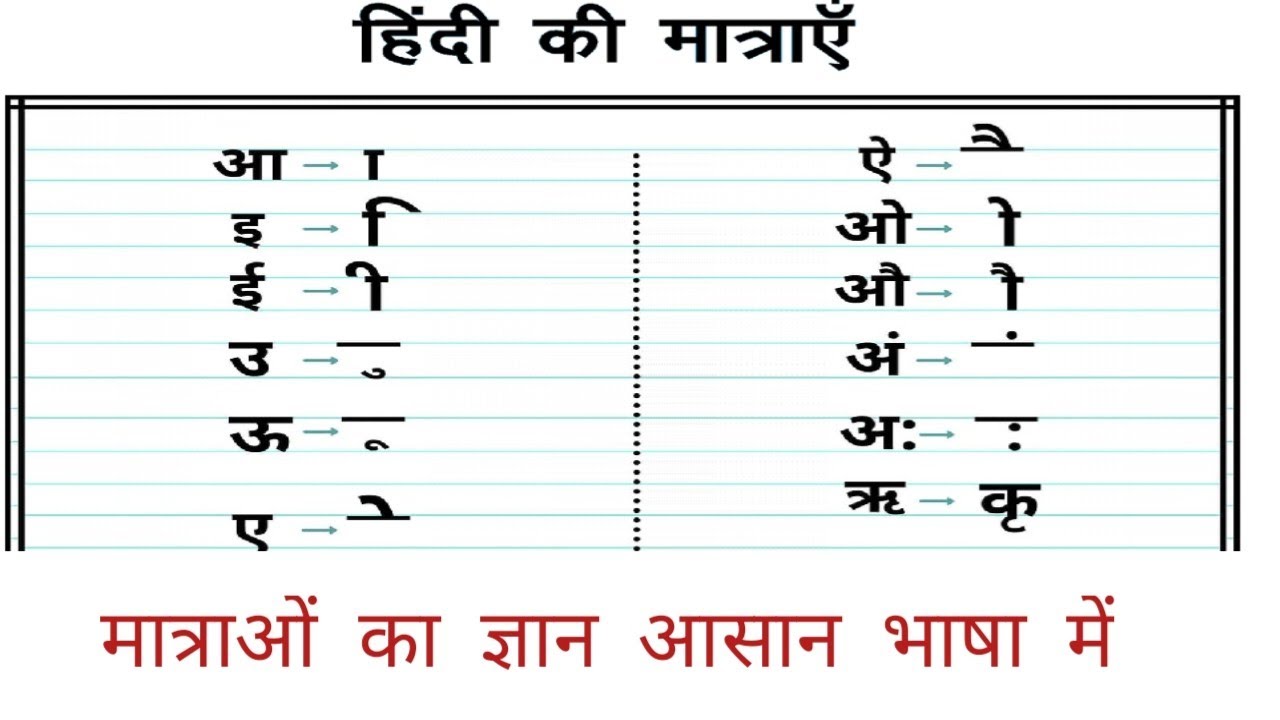 हिंदी की मात्राएँ
आ → ा
इ → ि
ई → ी
उ → ु
ऊ → ू
ए → े
ऐ → ै
ओ → ो
औ → ौ
अं → ं
अः → ः
ऋ → कृ
मात्राओं का ज्ञान आसान भाषा में